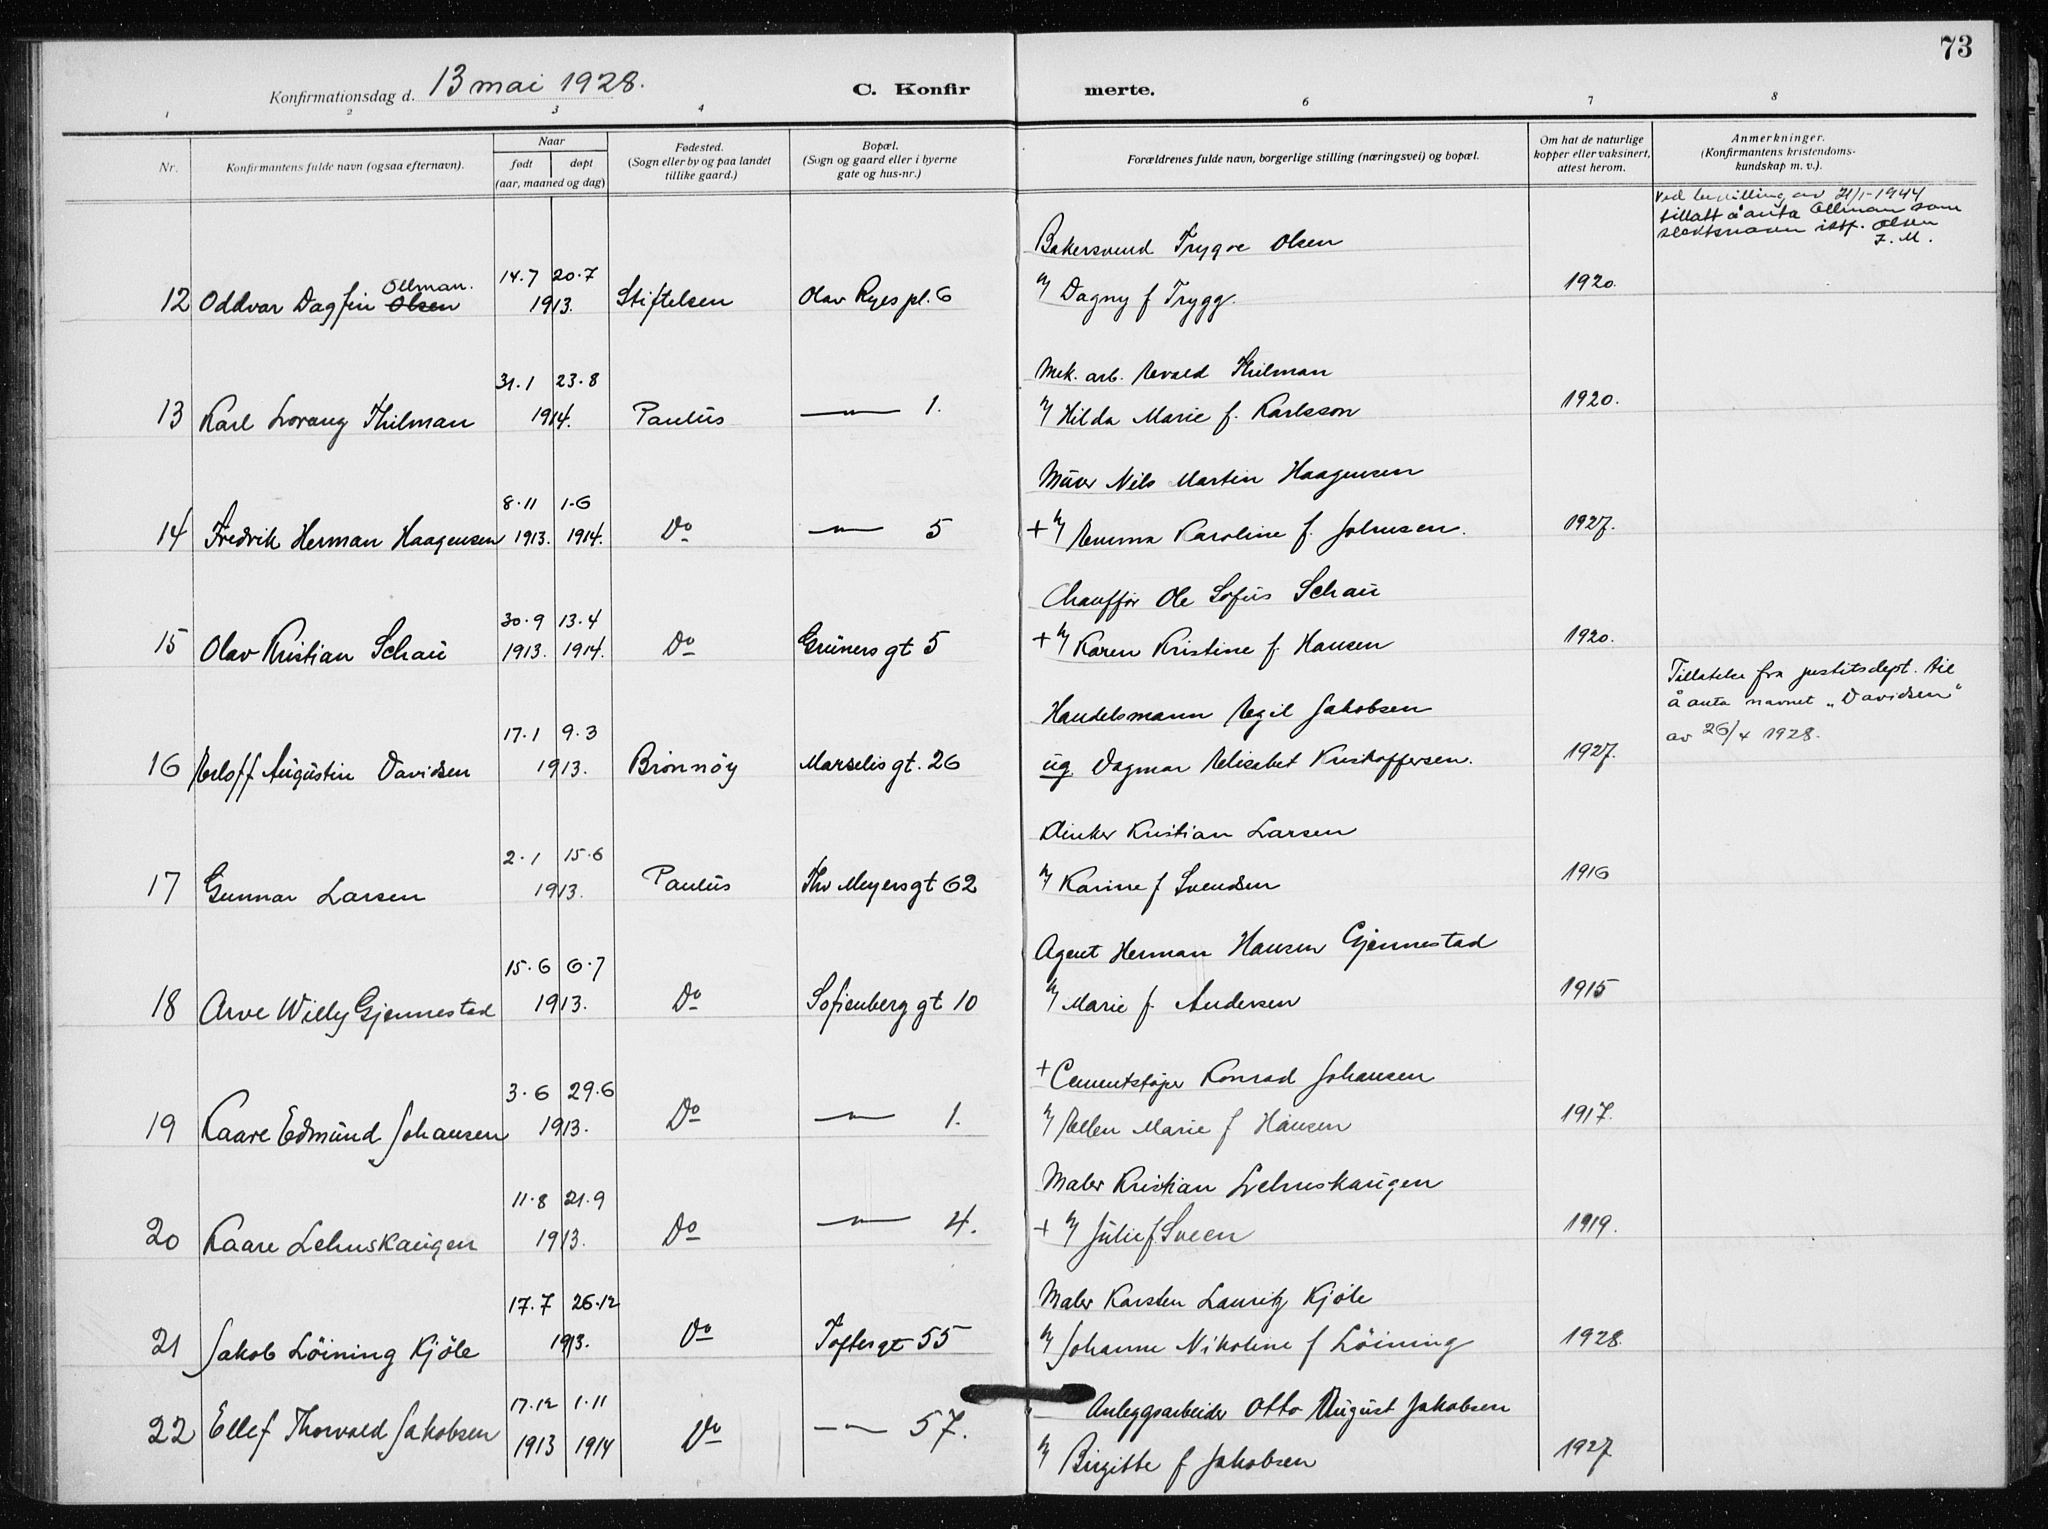 73
Konfirmationsdag d. 13 mai 1928.
C. Konfirmerte.
1 2 3 4 6 7 8
Nr.
Konfirmantens fulde navn (ogsaa efternavn).
Naar
født døpt
(aar, maaned og dag)
Fødested.
(Sogn eller by og paa landet
tillike gaard.)
Bopæl.
(Sogn og gaard eller i byerne
gate og hus-nr.)
Forældrenes fulde navn, borgerlige stilling (næringsvei) og bopæl.
Om hat de naturlige
kopper eller vaksinert,
attest herom.
Anmerkninger.
(Konfirmantens kristendoms-
kundskap m. v.).
Ved bevilling av 21/1-1944
tillatt å anta Ollman som
slektsnavn istf. Olsen
J. M.
Bakersvend Trygve Olsen
14.7 20.7
Ollman.
12 Oddvar Dagfin Olsen 1913. Stiftelsen Olav Ryes pl. 6 m/ Dagny f Trygg. 1920.
Mek. arb. Evald Thilman
31.1 23.8
13 Karl Lorang Thilman 1914. Paulus —"— 1. m/ Hilda Marie f. Karlsson 1920.
Murer Nils Martin Haagensen
8.11 1.6
14 Fredrik Herman Haagensen 1913. 1914. Do —"— 5 + m/ Emma Karoline f. Johnsen. 1927.
Chauffør Ole Sofus Schau
30.9 13.4
15 Olav Kristian Schau 1913. 1914. Do Grüners gt 5 + m/ Karen Kristine f. Hansen 1920.
Tillatelse fra justitsdept. til
å anta navnet „Davidsen"
av 26/4 1928.
Handelsmann Egil Jakobsen
17.1 9.3
16 Erloff Augustin Davidsen 1913. Brønnøy Marselis gt. 26 ug. Dagmar Elisabet Kristoffersen. 1927.
Klinker Kristian Larsen
2.1 15.6
17 Gunnar Larsen 1913. Paulus Thv Meyers gt 62 m/ Karine f Svendsen 1916
Agent Herman Hansen Gjennestad
15.6 6.7
18 Arve Willy Gjennestad 1913. Do Sofienberg gt 10 m/ Marie f. Andersen 1915
+ Cementstøper Konrad Johansen
3.6 29.6
19 Kaare Edmund Johansen 1913. Do —"— 1. m/ Ellen Marie f Hansen 1917.
Maler Kristian Lehnskaugen
11.8 21.9
20 Kaare Lehnskaugen 1913. Do —"— 4. + m/ Julie f Sveen 1919.
Maler Karsten Lauritz Kjöle
17.7 26.12
21 Jakob Löining Kjöle 1913. Do Toftes gt 55 m/ Johanne Nikoline f Löining 1928
Anleggsarbeider Otto August Jakobsen
17.12 1.11
22 Ellef Thorvald Jakobsen 1913 1914 Do —"— 57. m/ Birgitte f Jakobsen 1927